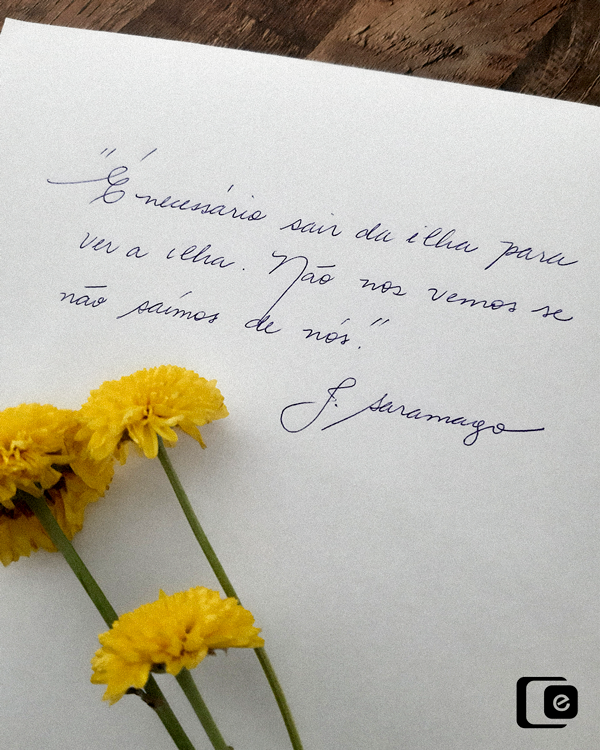 "É necessário sair da ilha para
ver a ilha. Não nos vemos se
não saímos de nós."
J. Saramago
e